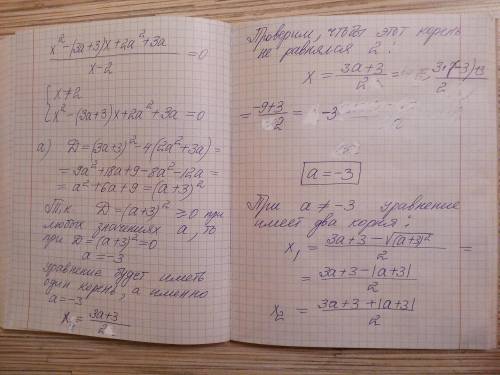 x² - (3a+3)x + 2a² + 3a
————————— = 0
x - 2
{ x ≠ 2
{ x² - (3a+3)x + 2a² + 3a = 0
а) D = (3a+3)² - 4(2a² + 3a) =
= 9a² + 18a + 9 - 8a² - 12a =
= a² + 6a + 9 = (a+3)²
Т.к. D = (a+3)² ≥ 0 при
любых значениях a, то
при D = (a+3)² = 0
a = -3
уравнение будет иметь
один корень, а именно
a = -3
x₁ = (3a+3)/2
Проверим, чтобы этот корень
не равнялся 2:
x = (3a+3)/2 = (3·(-3)+3)/2
= (-9+3)/2 = -3
a = -3
При a ≠ -3 уравнение
имеет два корня:
x₁ = (3a+3 - √(a+3)²)/2 =
= (3a+3 - |a+3|)/2
x₂ = (3a+3 + |a+3|)/2